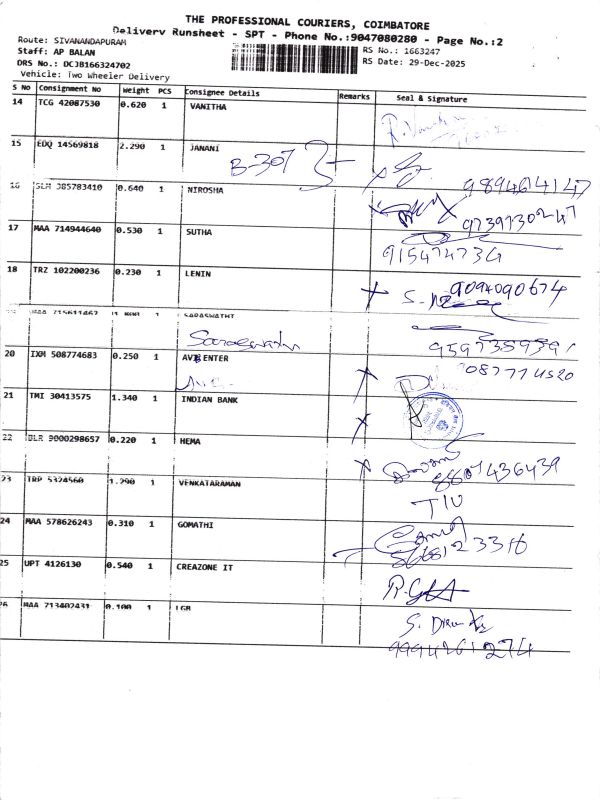 THE PROFESSIONAL COURIERS, COIMBATORE
Delivery Runsheet - SPT - Phone No.:9047080280 - Page No.:2
Route: SIVANANDAPURAM
RS No.: 1663247
Staff: AP BALAN
RS Date: 29-Dec-2025
DRS No.: DCJB166324702
Vehicle: Two Wheeler Delivery
S No Consignment No Weight PCS Consignee Details Remarks Seal & Signature
14 TCG 42087530 0.620 1 VANITHA
15 EDQ 14569818 2.290 1 JANANI
B-307
9894614147
16 SLM 385783410 0.640 1 NIROSHA
9739730247
17 MAA 714944640 0.530 1 SUTHA
9154747734
18 TRZ 102200236 0.230 1 LENIN
9094090674
MAA 715611467 1 SARASWATHI
Saraswathi
20 IXM 508774683 0.250 1 ENTER
21 TMI 30413575 1.340 1 INDIAN BANK
22 BLR 9000298657 0.220 1 HEMA
8807436439
23 TRP 5324560 1.290 1 VENKATARAMAN
24 MAA 578626243 0.310 1 GOMATHI
25 UPT 4126130 0.540 1 CREAZONE IT
26 MAA 713402431 0.100 1 LGB